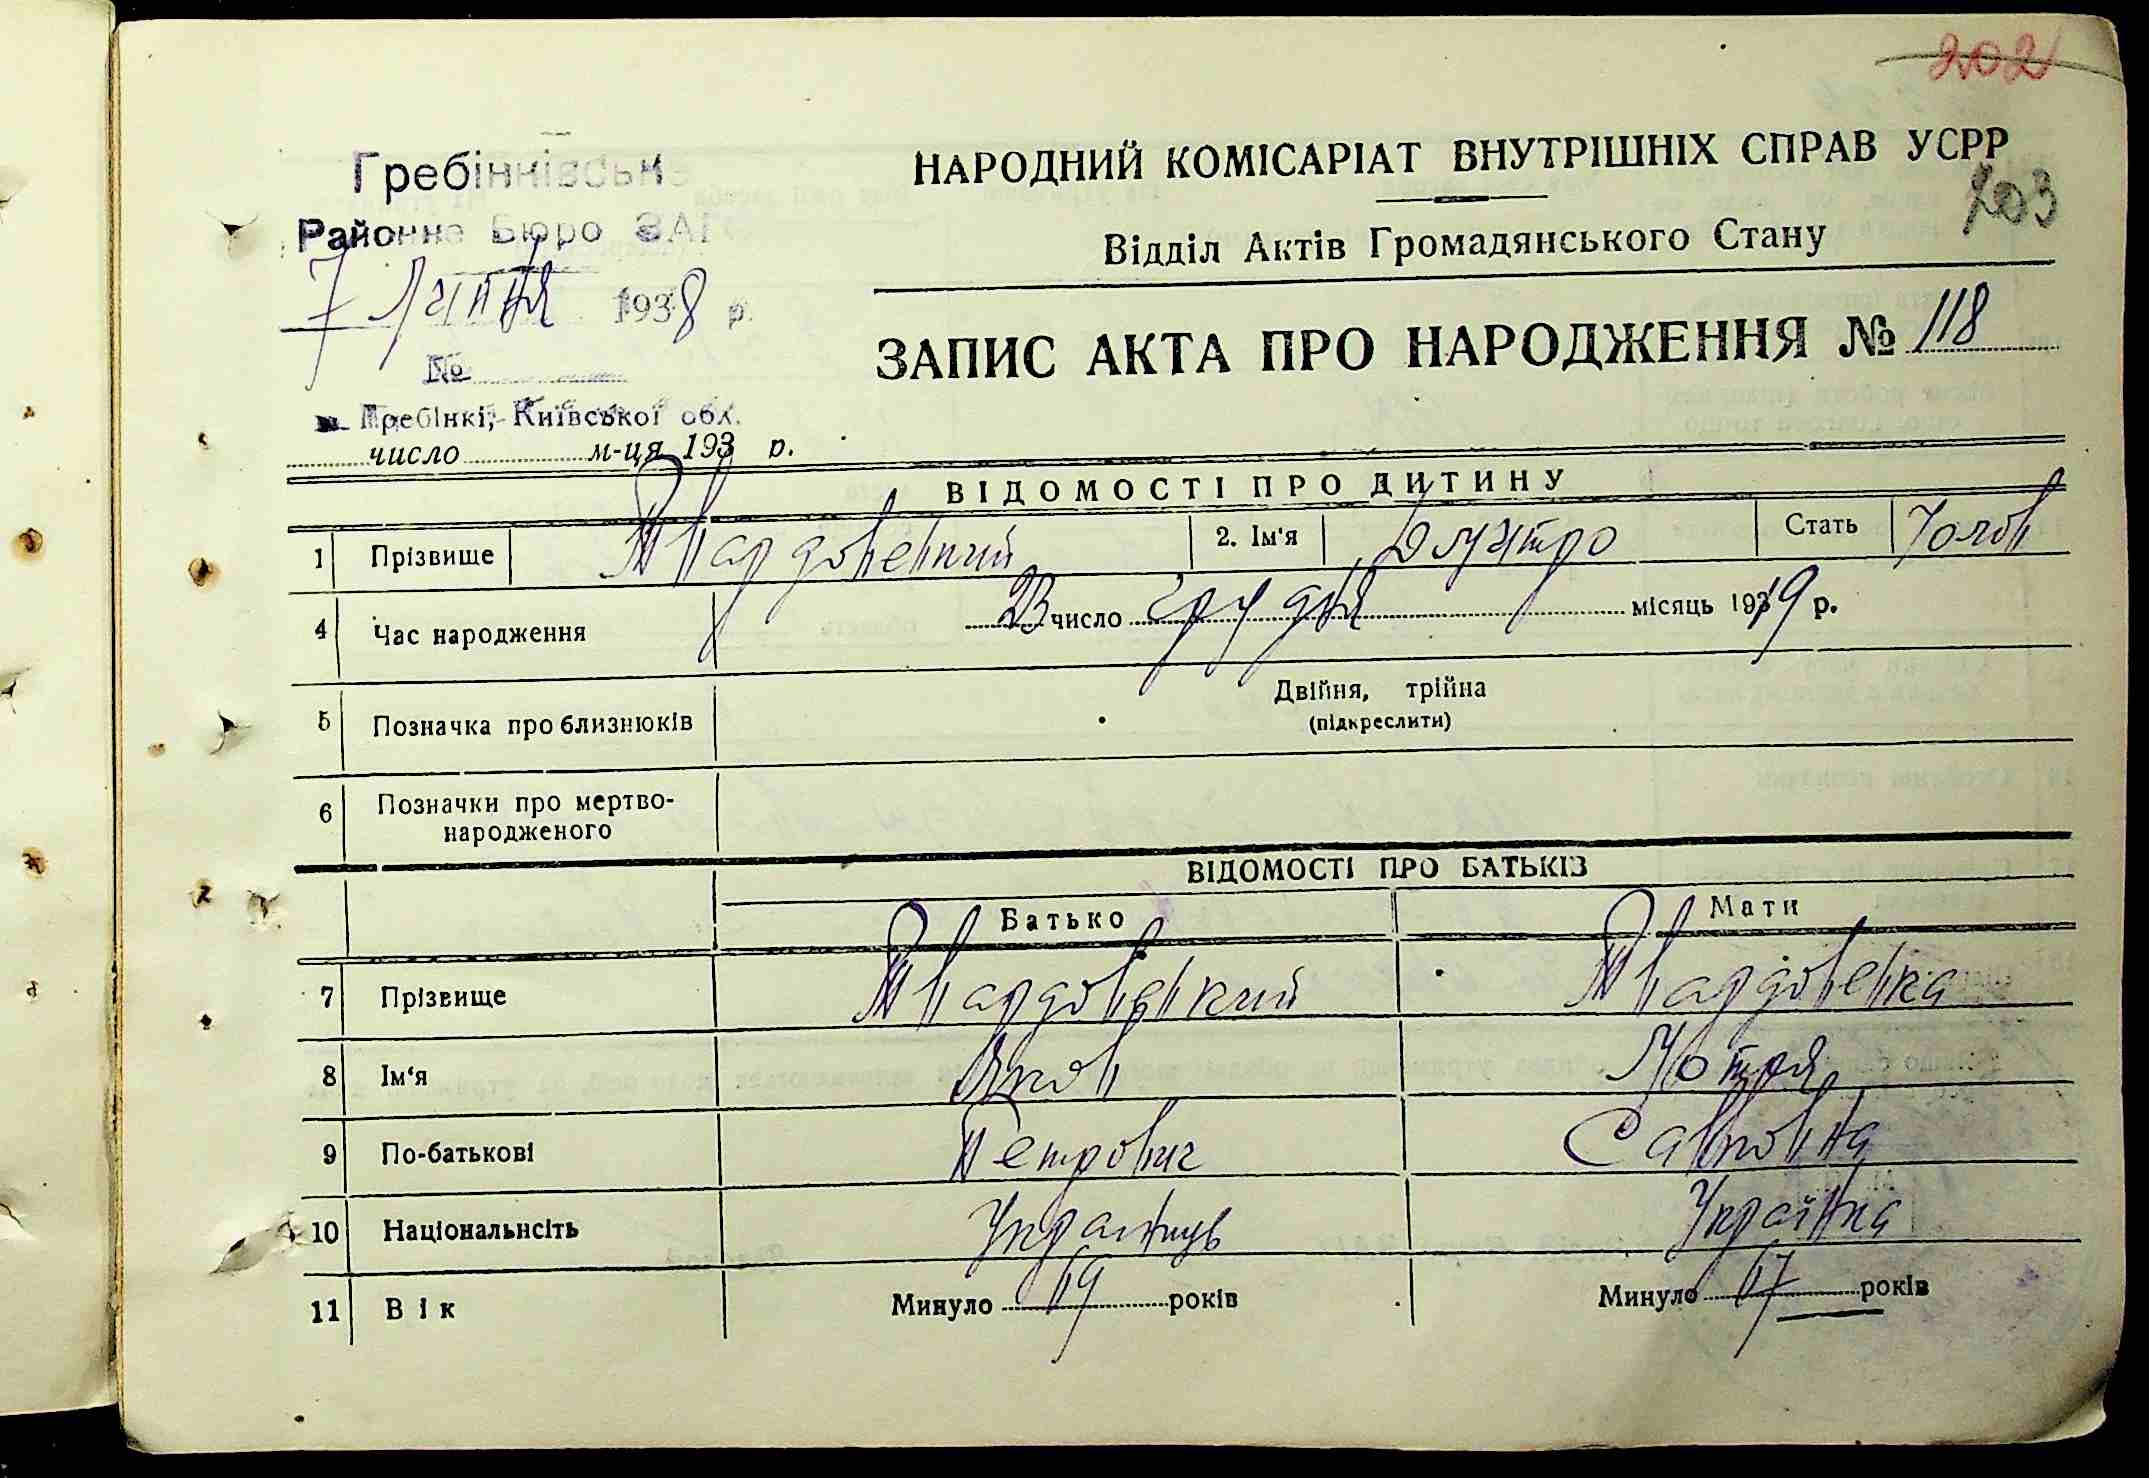 202
203
Гребінківське
Районне Бюро ЗАГС
7 Липня 1938 р.
№
м. Гребінкі, Київської обл.
число м-ця 193 р.
НАРОДНИЙ КОМІСАРІАТ ВНУТРІШНІХ СПРАВ УСРР
Відділ Актів Громадянського Стану
ЗАПИС АКТА ПРО НАРОДЖЕННЯ № 118
ВІДОМОСТІ ПРО ДИТИНУ
1 Прізвище Твардовський 2. Ім'я Дмитро Стать Чолов
4 Час народження 23 число грудня місяць 1919 р.
5 Позначка про близнюків Двійня, трійна
(підкреслити)
6 Позначки про мертво-
народженого
ВІДОМОСТІ ПРО БАТЬКІВ
Батько Мати
7 Прізвище Твардовський Твардовска
8 Ім'я Яков Мотря
9 По-батькові Петрович Савовна
10 Національнсіть Українець Українка
11 Вік Минуло 19 років Минуло 17 років